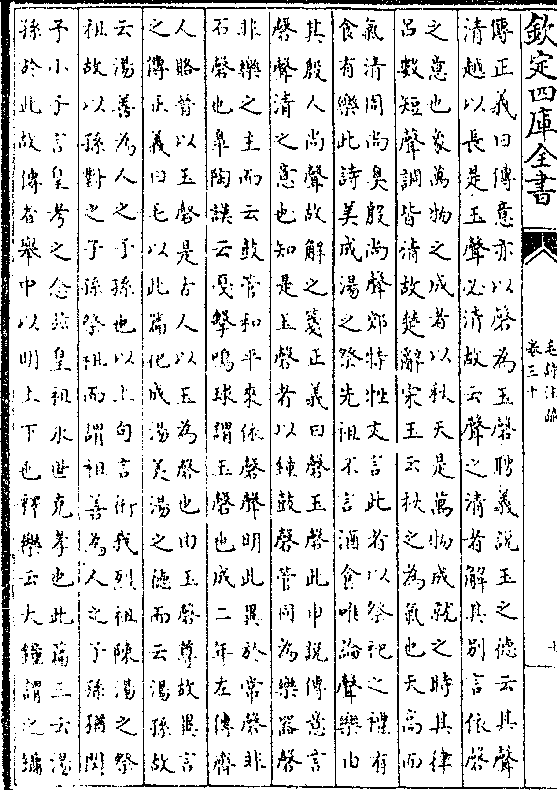 欽定四庫全書
毛詩注疏
卷三十
傳正義曰傳意亦以磬為玉磬聘義說玉之徳云其聲
清越以長是玉聲必清故云聲之清者解其别言依磬
之意也象萬物之成者以秋天是萬物成就之時其律
吕數短聲調皆清故楚辭宋玉云秋之為氣也天髙而
氣清周尚臭殷尚聲郊特牲文言此者以祭祀之禮有
食有樂此詩美成湯之祭先祖不言酒食唯論聲樂由
其殷人尚聲故解之箋正義曰磬玉磬此申説傳意言
磬聲清之意也知是玉磬者以鍾鼓磬管同為樂器磬
非樂之主而云鼓管和平來依磬聲明此異於常磬非
石磬也臯陶謨云戞擊鳴球謂玉磬也成二年左傳齊
人賂晉以玉磬是古人以玉為磬也由玉磬尊故異言
之傳正義曰毛以此篇他成湯美湯之徳而云湯孫故
云湯善為人之子孫也以上句言衎我烈祖陳湯之祭
祖故以孫對之子孫祭祖而謂祖善為人之子孫猶閔
予小子言皇考之念兹皇祖永世克孝也此篇三云湯
孫於此故傳者舉中以明上下也釋樂云大鐘謂之鏞